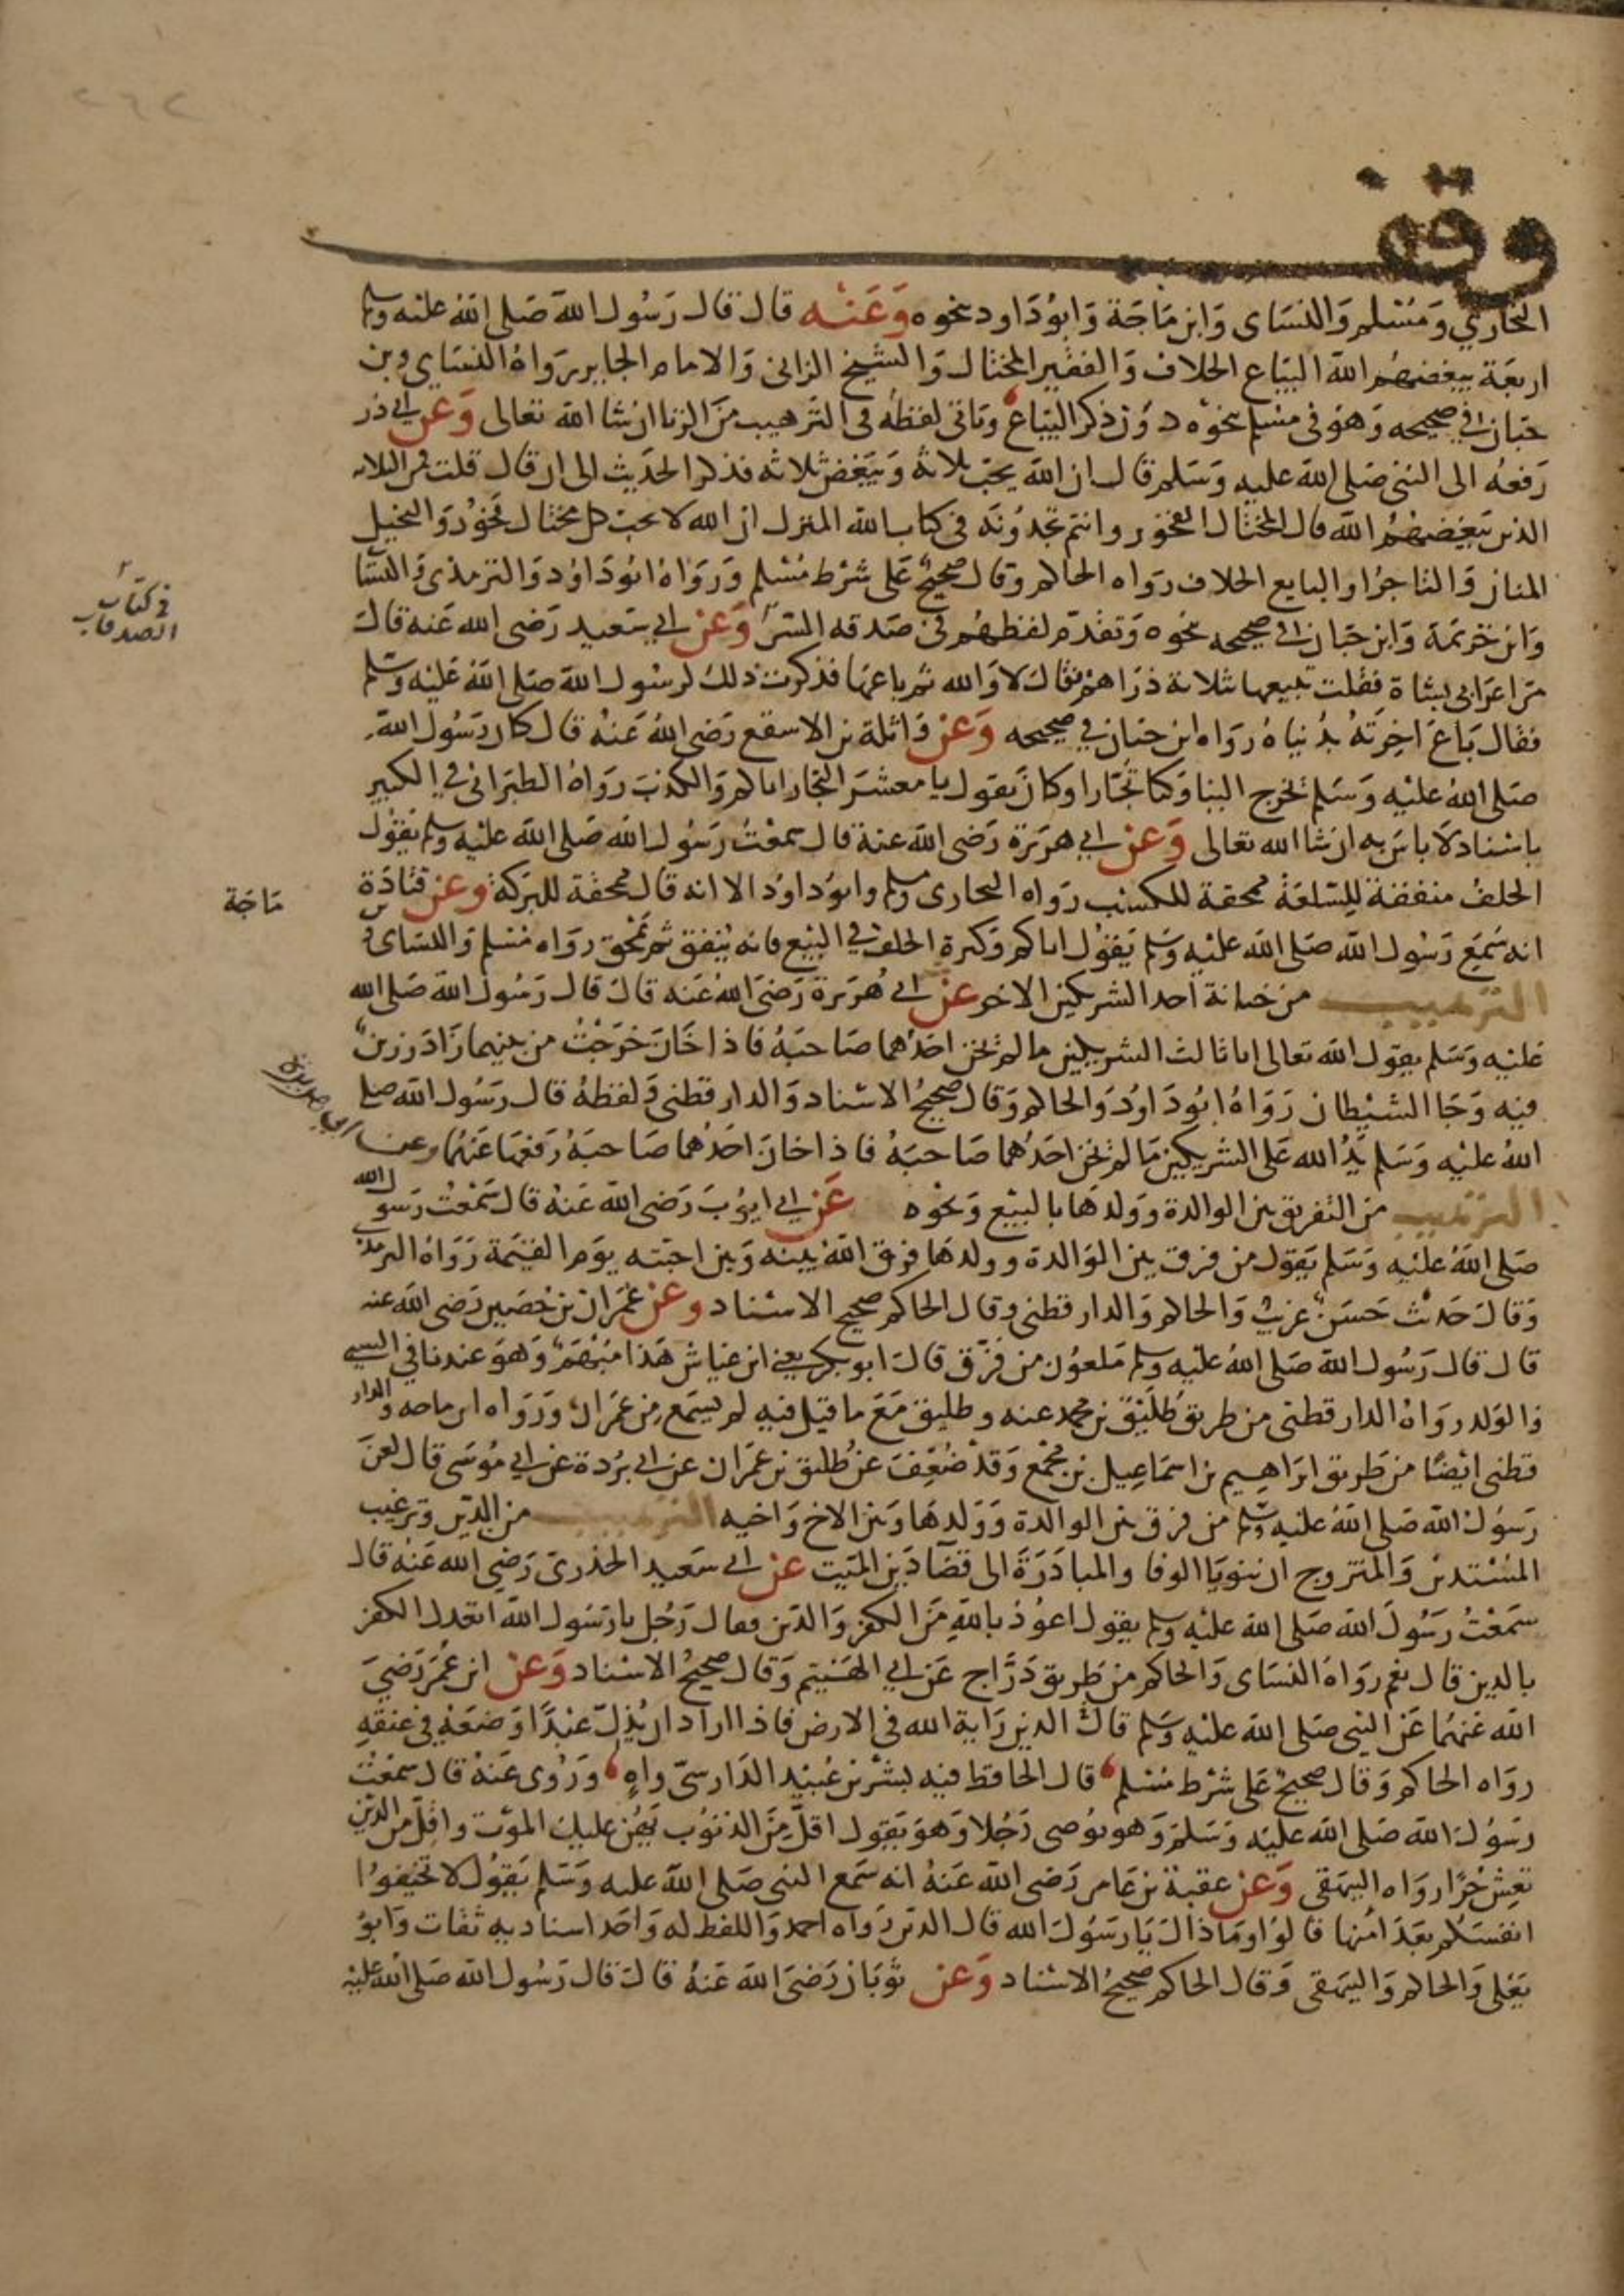 ٢٦٢
وقف
البخاري ومسلم والنساى وابن ماجة وابوداود نحوه وعنه قال قال رسول الله صلى الله عليه وسلم
اربعة يبغضهم الله البياع الحلاف والفقير المختال والشيخ الزانى والامام الجاير رواه النساي وبن
حبان في صحيحه وهو فى مسلم نحوه دون ذكر البياع وتاتى لفظه فى الترهيب من الزنا ان شا الله تعالى وعن ابي ذر
رفعه الى النبى صلى الله عليه وسلم قال ان الله يحب ثلاثة ويبغض ثلاثه فذكر الحديث الى ان قال قلت فمن الثلاثه
الذين يبغضهم الله قال المختال الفخور وانتم تجدونه فى كتاب الله المنزل ان الله لا يحب كل مختال فخور والبخيل
المنان والتاجر او البايع الحلاف رواه الحاكم وقال صحيح على شرط مسلم ورواه ابوداود والترمذى والنسا
وابن خزيمة وابن حبان في صحيحه نحوه وتقدم لفظهم فى صدقه السر وعن ابي سعيد رضى الله عنه قال
في كتاب
الصدقات
مر اعرابى بشاة فقلت تبيعها بثلاثة دراهم فقال لا والله ثم باعها فذكرت ذلك لرسول الله صلى الله عليه وسلم
فقال باع اخرته بدنياه رواه ابن حبان في صحيحه وعن واثلة بن الاسقع رضى الله عنه قال كان رسول الله
صلى الله عليه وسلم يخرج الينا وكنا تجارا وكان يقول يا معشر التجار اياكم والكذب رواه الطبرانى في الكبير
باسناد لا باس به ان شا الله تعالى وعن ابي هريرة رضى الله عنه قال سمعت رسول الله صلى الله عليه وسلم يقول
الحلف منفقة للسلعة ممحقة للكسب رواه البخارى ومسلم وابوداود الا انه قال ممحقة للبركة وعن قتادة
انه سمع رسول الله صلى الله عليه وسلم يقول اياكم وكثرة الحلف في البيع فانه ينفق ثم يمحق رواه مسلم والنساى و
ماجة
الترهيب من خيانة احد الشريكين الاخر عن ابي هريرة رضى الله عنه قال قال رسول الله صلى الله
عليه وسلم يقول الله تعالى انا ثالث الشريكين ما لم يخن احدهما صاحبه فاذا خان خرجت من بينهما زاد رزين
فيه وجا الشيطان رواه ابوداود والحاكم وقال صحيح الاسناد والدارقطنى ولفظه قال رسول الله صلى
الله عليه وسلم يد الله على الشريكين ما لم يخن احدهما صاحبه فاذا خان احدهما صاحبه رفعها عنهما وعن
الترهيب من التفريق بين الوالدة وولدها بالبيع ونحوه عن ابي ايوب رضى الله عنه قال سمعت رسول الله
صلى الله عليه وسلم يقول من فرق بين الوالدة وولدها فرق الله بينه وبين احبته يوم القيمة رواه الترمذي
وقال حديث حسن غريب والحاكم والدارقطنى وقال الحاكم صحيح الاسناد وعن عمران بن حصين رضى الله عنه
قال قال رسول الله صلى الله عليه وسلم ملعون من فرق قال ابو بكر يعنى ابن عياش هذا مبهم وهو عندنا في السبي
والولد رواه الدارقطنى من طريق طليق بن محمد عنه وطليق مع ما قيل فيه لم يسمع من عمران ورواه ابن ماجه والدار
قطنى ايضا من طريق ابراهيم بن اسماعيل بن مجمع وقد ضعف عن طليق بن عمران عن ابي بردة عن ابي موسى قال لعن
رسول الله صلى الله عليه وسلم من فرق بين الوالدة وولدها وبين الاخ واخيه الترهيب من الدين وترغيب
المستدين والمتزوج ان ينويا الوفا والمبادرة الى قضا دين الميت عن ابي سعيد الخدري رضي الله عنه قال
سمعت رسول الله صلى الله عليه وسلم يقول اعوذ بالله من الكفر والدين فقال رجل يا رسول الله اتعدل الكفر
بالدين قال نعم رواه النساى والحاكم من طريق دراج عن ابي الهيثم وقال صحيح الاسناد وعن ابن عمر رضي
الله عنهما عن النبى صلى الله عليه وسلم قال الدين راية الله فى الارض فاذا اراد ان يذل عبدا وضعه في عنقه
رواه الحاكم وقال صحيح على شرط مسلم قال الحافظ فيه بشر بن عبيد الدارسي واه وروى عنه قال سمعت
رسول الله صلى الله عليه وسلم وهو يوصى رجلا وهو يقول اقل من الذنوب يهن عليك الموت واقل من الدين
تعش حرا رواه البيهقى وعن عقبة بن عامر رضى الله عنه انه سمع النبى صلى الله عليه وسلم يقول لا تخيفوا
انفسكم بعد امنها قالوا وما ذاك يا رسول الله قال الدين رواه احمد واللفظ له واحد اسناديه ثقات وابو
يعلى والحاكم والبيهقى وقال الحاكم صحيح الاسناد وعن ثوبان رضى الله عنه قال قال رسول الله صلى الله عليه